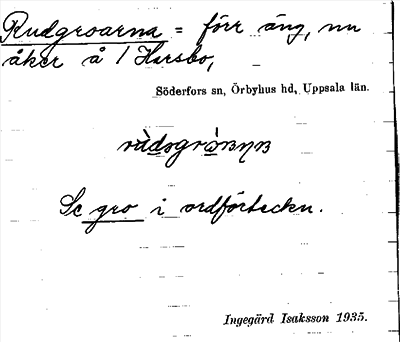 Rudgroarna = förr äng, nu
åker å / Harsbo,
Söderfors sn, Örbyhus hd, Uppsala län.
Se gro i ordförteckn.
Ingegärd Isaksson 1935.